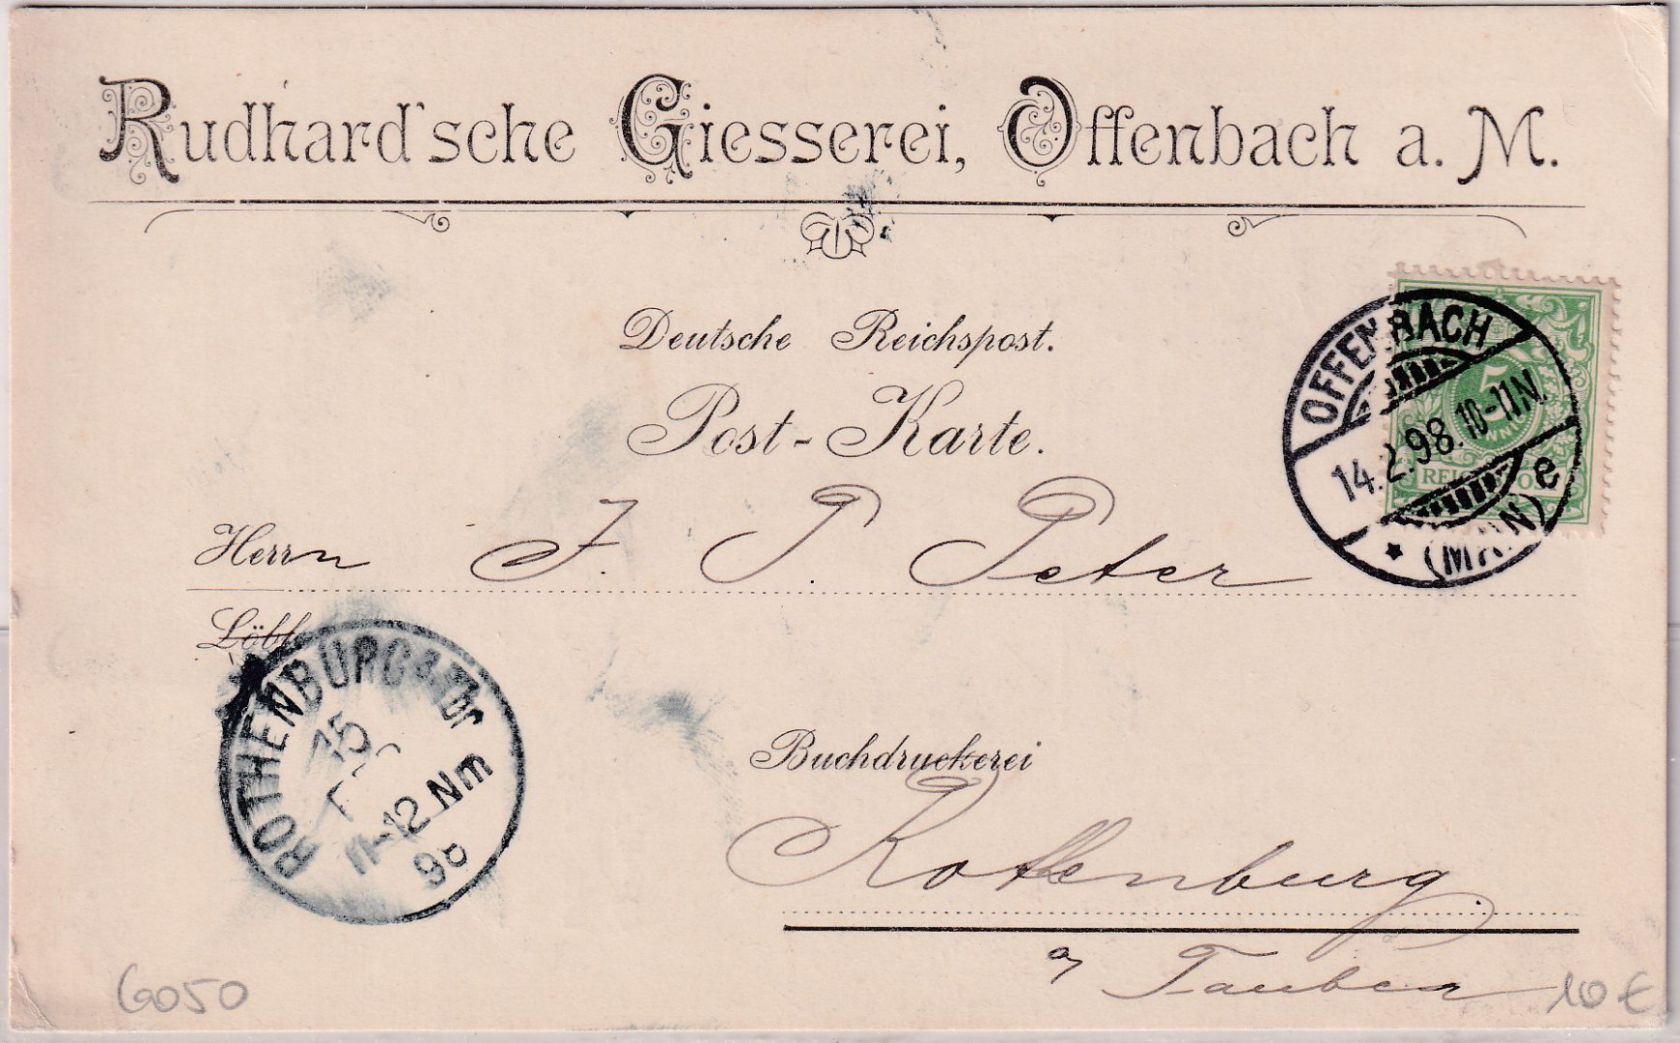 Rudhard'sche Giesserei, Offenbach a. M.
Deutsche Reichspost.
Post-Karte.
OFFENBACH
14.2.98. 10-11N.
e
* (MAIN)
5
REICHSPOST
Herrn J. P. Peter
Löbl.
ROTHENBURG a Tbr
15
11-12 Nm
98
Buchdruckerei
Rothenburg
a/ Tauber
6050
10 €